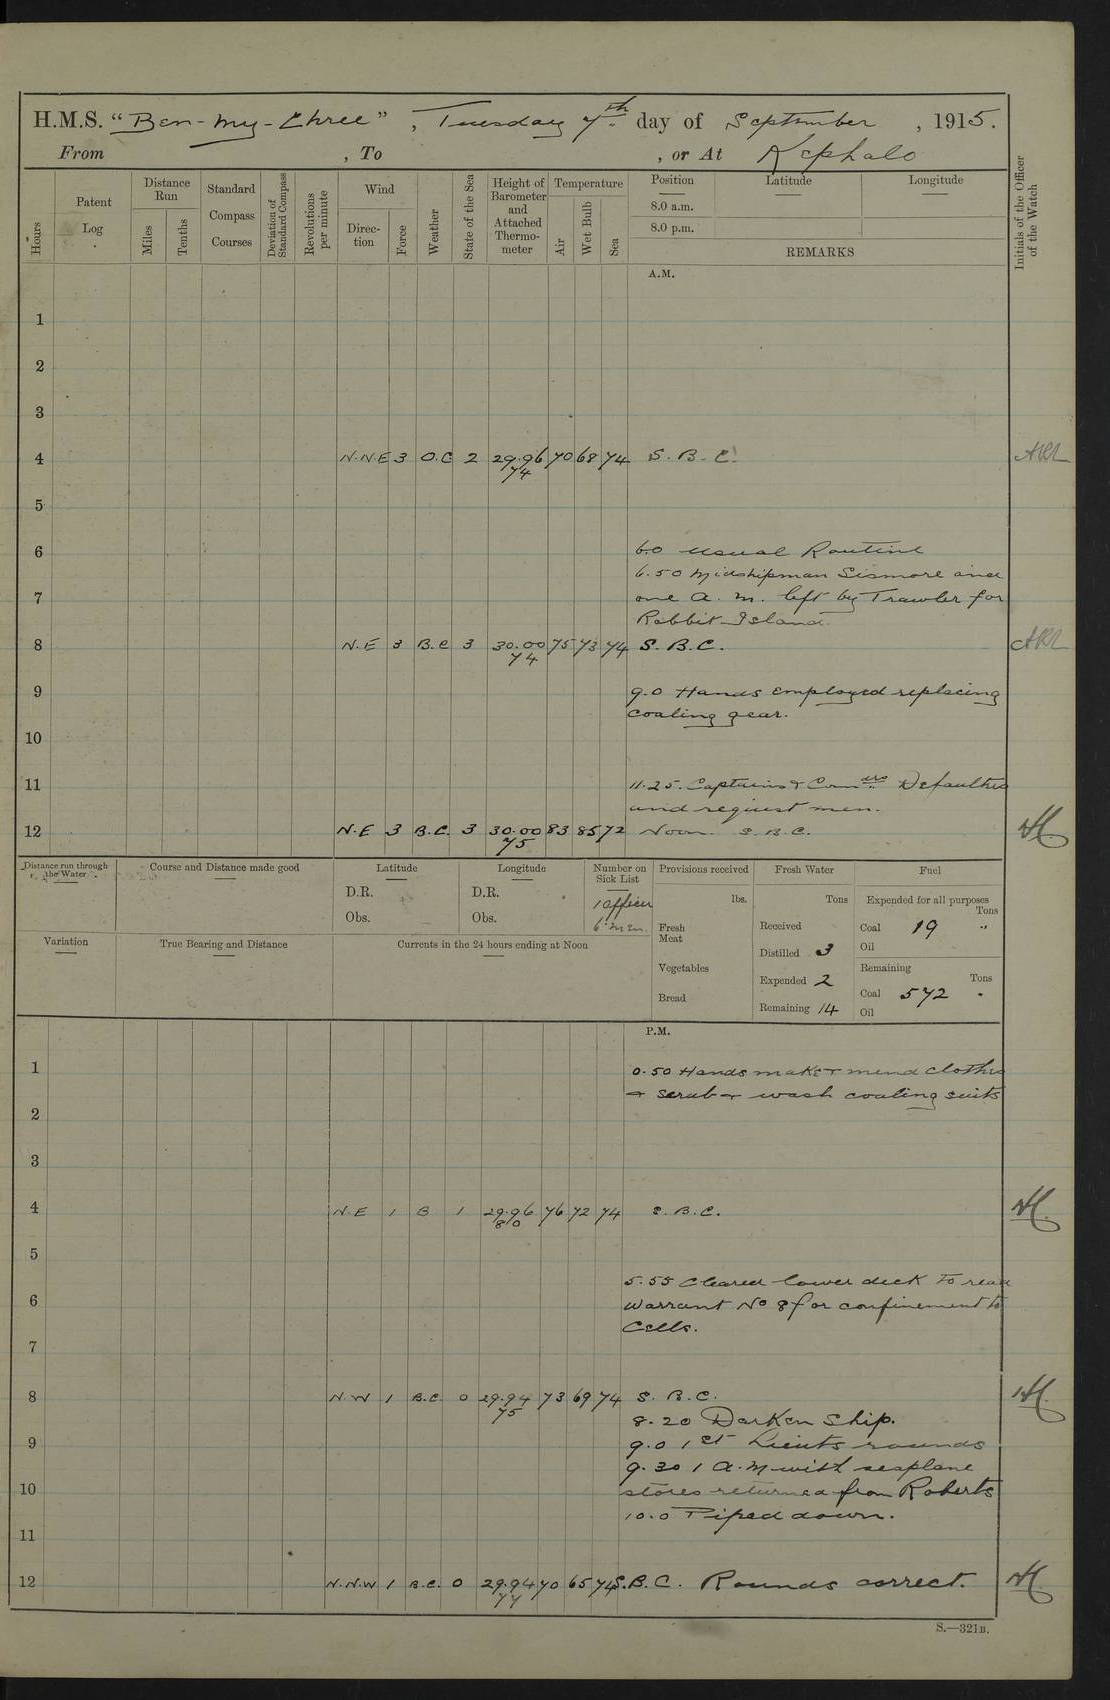 H.M.S. "Ben-my-Chree", Tuesday 7th day of September, 1915.
From , To , or At Kephalo
Hours
Patent Log
Distance Run
Miles
Tenths
Standard Compass Courses
Deviation of Standard Compass
Revolutions per minute
Wind
Direction
Force
Weather
State of the Sea
Height of Barometer and Attached Thermometer
Temperature
Air
Wet Bulb
Sea
Position
Latitude
Longitude
8.0 a.m.
8.0 p.m.
REMARKS
Initials of the Officer of the Watch
A.M.
1
2
3
4 N.N.E 3 O.C 2 29.96 70 68 74 S.B.C.
74
5
6 6.0 usual Routine
6.50 Midshipman Sismore and
7 one A.M. left by Trawler for
Rabbit Island.
8 N.E 3 B.C 3 30.00 75 73 74 S.B.C.
74
9 9.0 Hands employed replacing
coaling gear.
10
11 11.25. Captains & Comdrs Defaulters
and request men.
12 N.E 3 B.C. 3 30.00 83 85 72 Noon. S.B.C.
75
Distance run through the Water
Course and Distance made good
Latitude
Longitude
Number on Sick List
Provisions received
Fresh Water
Fuel
D.R.
D.R.
1 officer
lbs.
Tons
Expended for all purposes
Tons
Obs.
Obs.
6 men.
Fresh Meat
Received
Coal 19 "
Oil
Variation
True Bearing and Distance
Currents in the 24 hours ending at Noon
Distilled 3
Vegetables
Remaining
Tons
Expended 2
Bread
Coal 572 "
Remaining 14
Oil
P.M.
1 0.50 Hands make & mend clothes
& scrub & wash coaling suits
2
3
4 N.E 1 B 1 29.96 76 72 74 S.B.C.
80
5
5.55 Cleared lower deck to read
6 Warrant No 8 for confinement to
Cells.
7
8 N.W 1 B.C. 0 29.94 73 69 74 S.B.C.
75
8.20 Darken Ship.
9 9.0 1st Lieuts rounds
9.30 1 A.M with seaplane
10 stores returned from Roberts
10.0 Piped down.
11
12 N.N.W 1 B.C. 0 29.94 70 65 74 S.B.C. Rounds correct.
77
S.—321B.